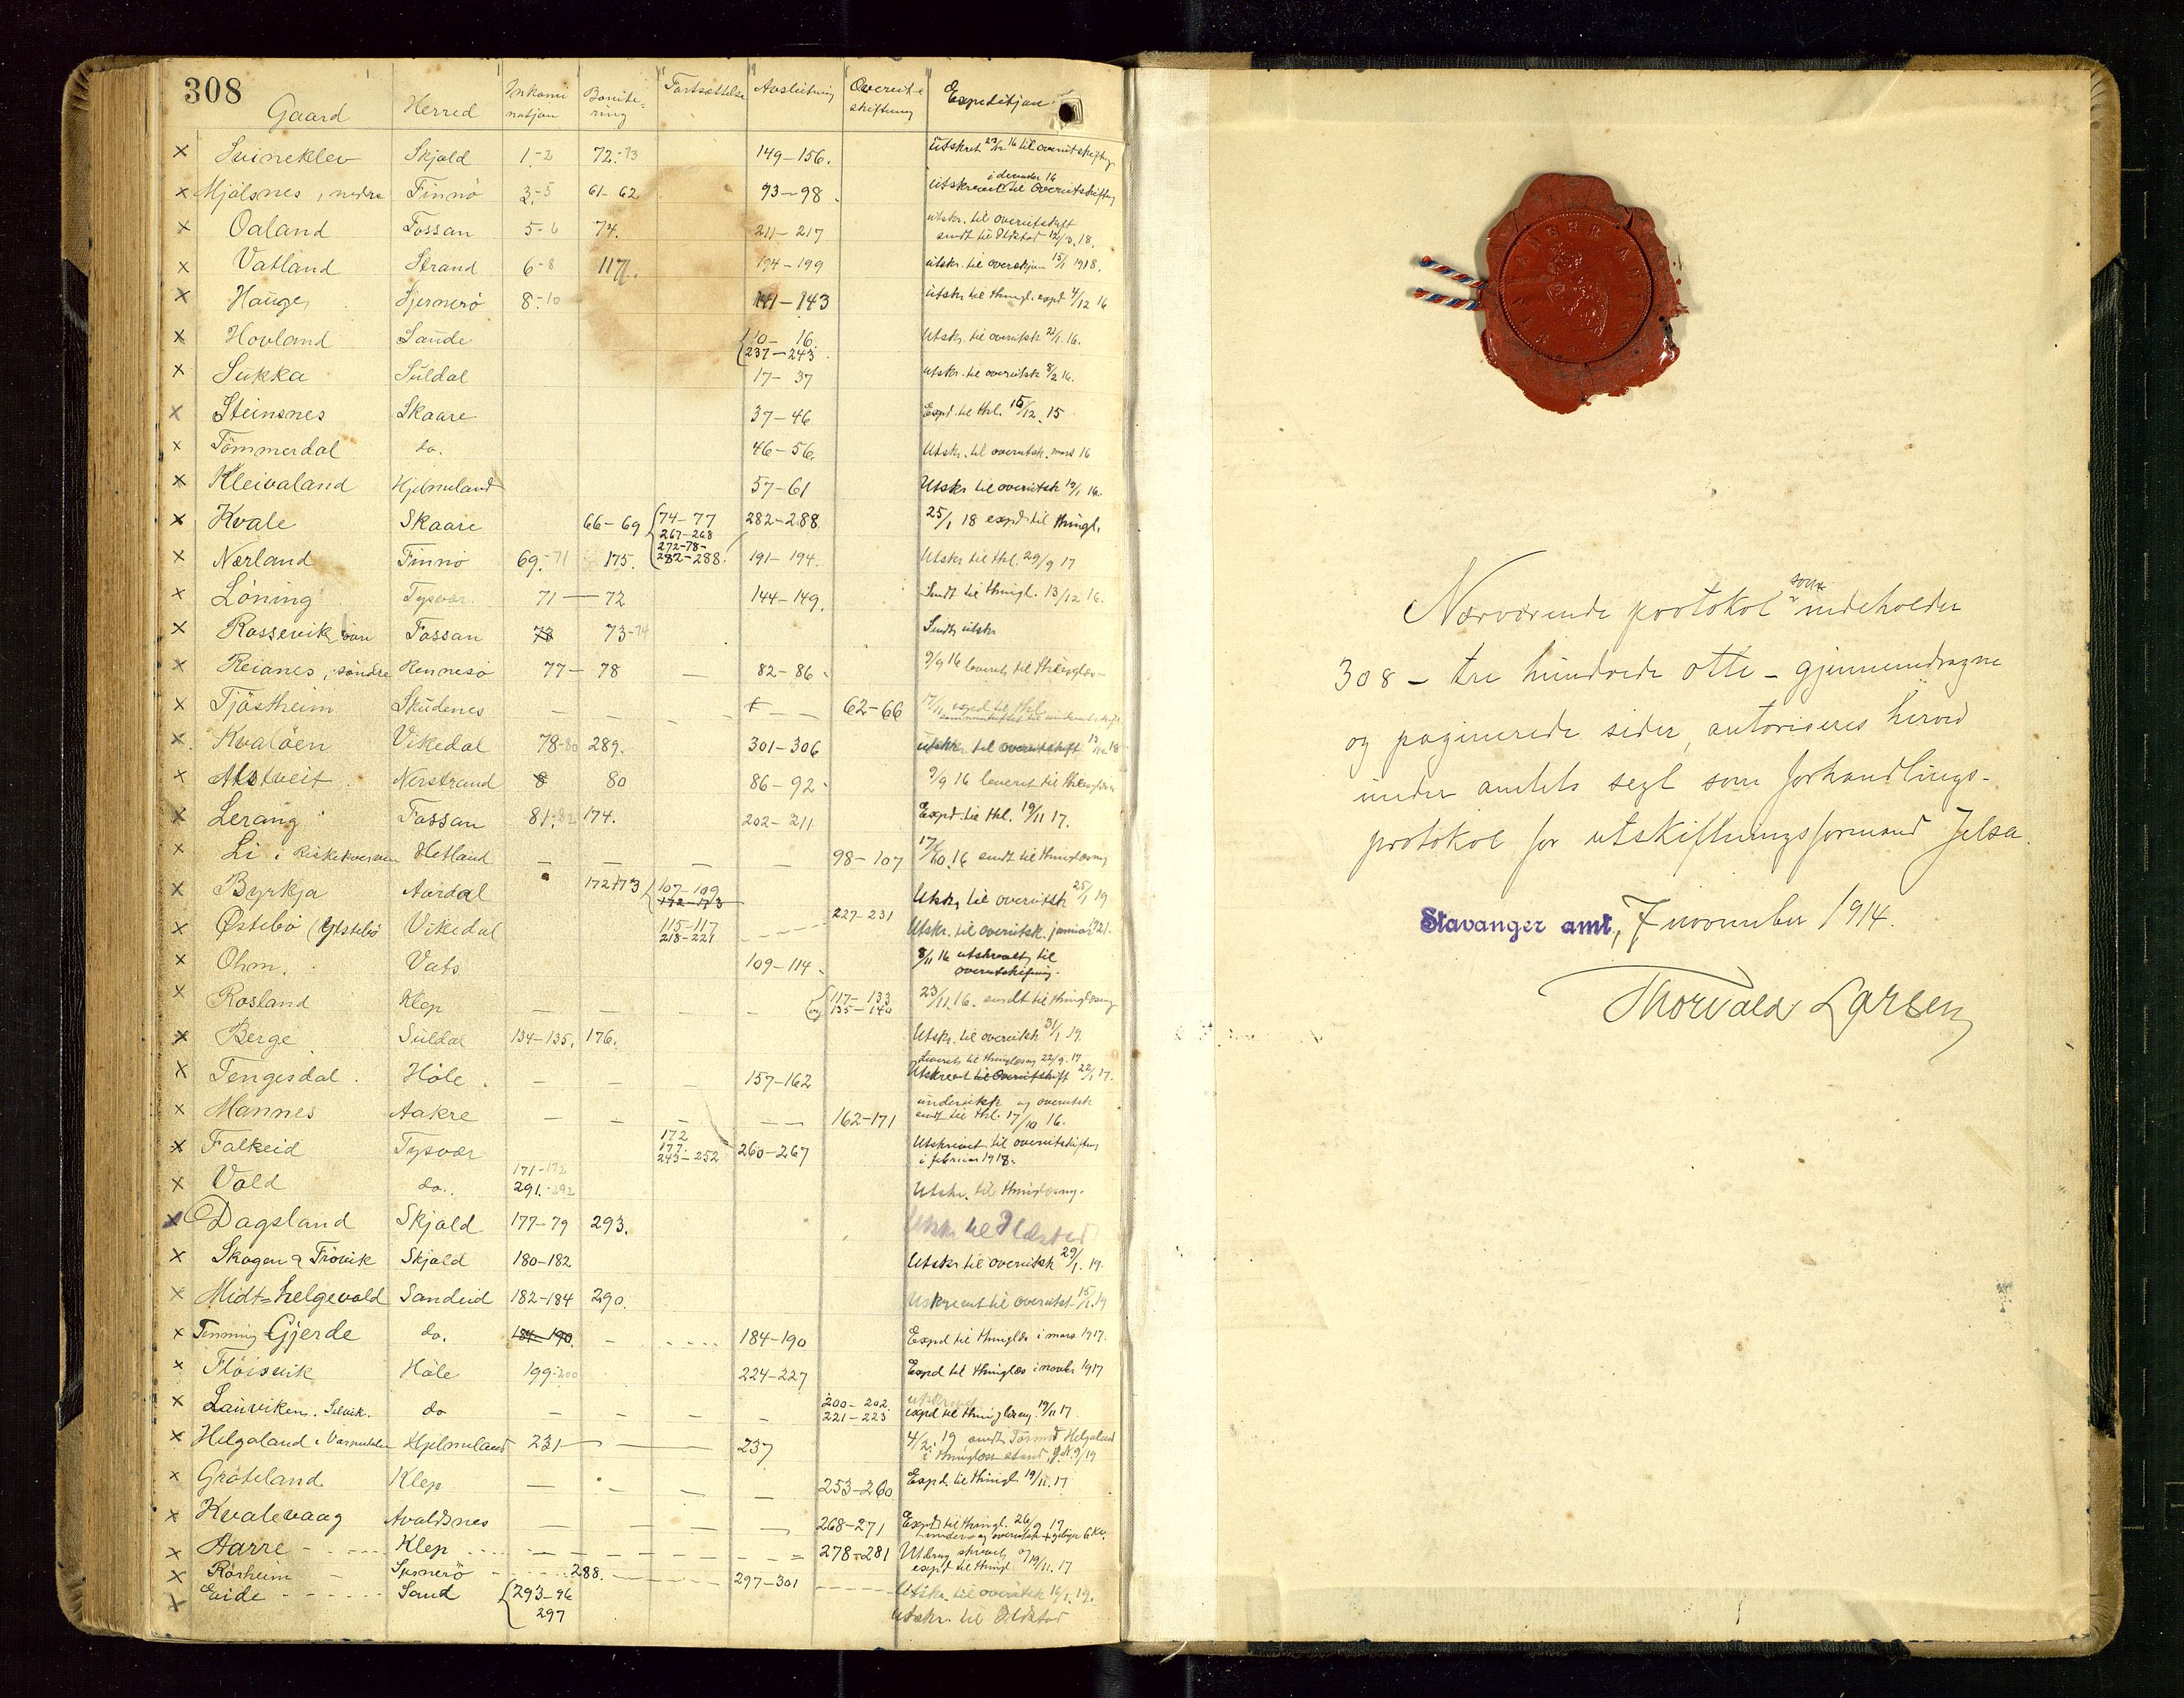 308
Gaard Herred Inkaminatjon Bonitering Fortsættelse Avslutning Overutskiftning Expeditjon
× Svineklev Skjold 1-2 72-73 149-156. Utskret 23/12 16 til overutskiftng
× Mjölsnes, nedre Finnö 3-5 61-62 93-98. utskrevet i december 16 til overutskiftng
× Oaland Fossan 5-6 74. 211-217 utskr. til overutskift sendt til Elktad 12/3. 18.
× Vatland Strand 6-8 117. 194-199 utskr. til overskjøn 15/1 1918.
× Hauge Sjernerö 8-10 141-143 utskr til thingl. expd 4/12 16
× Hovland Saude 10-16. 237-243. Utskr. til overutsk 21/1. 16.
× Sukka Suldal 17-37 utskr. til overutsk 8/2 16.
× Steinsnes Skaare 37-46 Expd. til thl. 15/12. 15
× Tömmerdal do. 46-56. Utskr. til overutsk. mars 16
× Kleivaland Hjelmeland 57-61 Utskr til overutsk 12/1 16.
× Kvale Skaare 66-69 74-77 267-268 272-78- 282-288. 282-288. 25/1 18 expd til thingl.
× Nærland Finnö 69-71 175. 191-194. Utskr til thl. 29/9 17
× Löning Tysvær 71 — 72 144-149. Sendt til thingl. 13/12 16.
× Rossevik, övre Fossan 73 73-74 Sendt utskr
× Reianes, söndre Rennesö 77 — 78 — 82-86. 9/9 16 leveret til thinglæsn
× Tjöstheim Skudenes — — — — 62-66 17/11 expd til thl
× Kvalöen Vikedal 78-80 289. 301-306 utskr. til overutskift 13/12 18
× Alstveit Nerstrand 8 80 86-92. 9/9 16 leveret til thinglæsn
× Lerang Fossan 81-82 174. 202-211 Expd til thl. 19/11 17.
× Li i Riskekverven Hetland — — — — 98-107 17/10. 16 sendt til thinglæsng
× Byrkja Aardal 172-173 107-109 172-173 Utskr til overutsk 25/1 19
× Østebö (Ylstebö Vikedal 115-117 218-221 — — — 227-231 Utskr. til overutsk. januar 1921.
× Ohm. Vats 109-114. 8/11 16 utskrevet til overutskiftng.
× Rosland Klep — — — — 117-133 og 135-140 23/11. 16. sendt til thinglæsng
× Berge Suldal 134-135. 176. Utskr. til overutsk 31/1 19.
× Tengesdal. Höle. — — — 157-162 Leveret til thinglæsng 22/9. 17 Utskrevet til overutskift 22/1 17.
× Mannes Aakre — — — — 162-171 underutsk og overutsk sendt til thl. 17/10 16.
× Falkeid Tysvær 172 177. 243-252 260-267 Utskrevet til overutskiftng i februar 1918.
× Vold do. 171-172 291.-292 Utskr. til thinglæsng.
× Dagsland Skjold 177-79 293. Utskr til Elktad
× Skogen & Frövik Skjold 180-182 Utskr til overutsk 29/1. 19.
× Midt=helgevold Sandeid 182-184 290. Uskrevet til overutsk 15/1. 19
× Tenning-Gjerde do. 184-190. — 184-190 Expd til thinglæs i mars 1917.
× Flöisvik Höle 199-200 224-227 Expd til thinglæs i novbr 1917
× Lauviken. Selvik. do — — — — 200-202. 221-223 utskrevet expd til thinglæsng. 19/11 17.
× Helgaland i Vormedalen Hjelmeland 231 — — — 237 4/2. 19 sendt Tormod Helgaland
× Gröteland Klep — — — — 253-260 Expd. til thingl 19/11. 17
× Kvalevaag Avaldsnes — — — — 268-271 Expd til thingl. 26/9 17
× Harre Klep — — — — 278-281 Utdrag skrevet og expd til thingl 19/11. 17
× Rörheim Sjernerö 288. — — 297-301 Utskr. til overutsk 16/1. 19.
× Eide Sand 293-96 297 Utskr. til Elktad
Nærværende protokol som indeholder
308 – tre hundrede otte – gjennemdragne
og paginerede sider, autoriseres herved
under amtets segl som forhandlings-
protokol for utskiftningsformand Jelsa.
Stavanger amt, 7 november 1914.
Thorvald Larsen